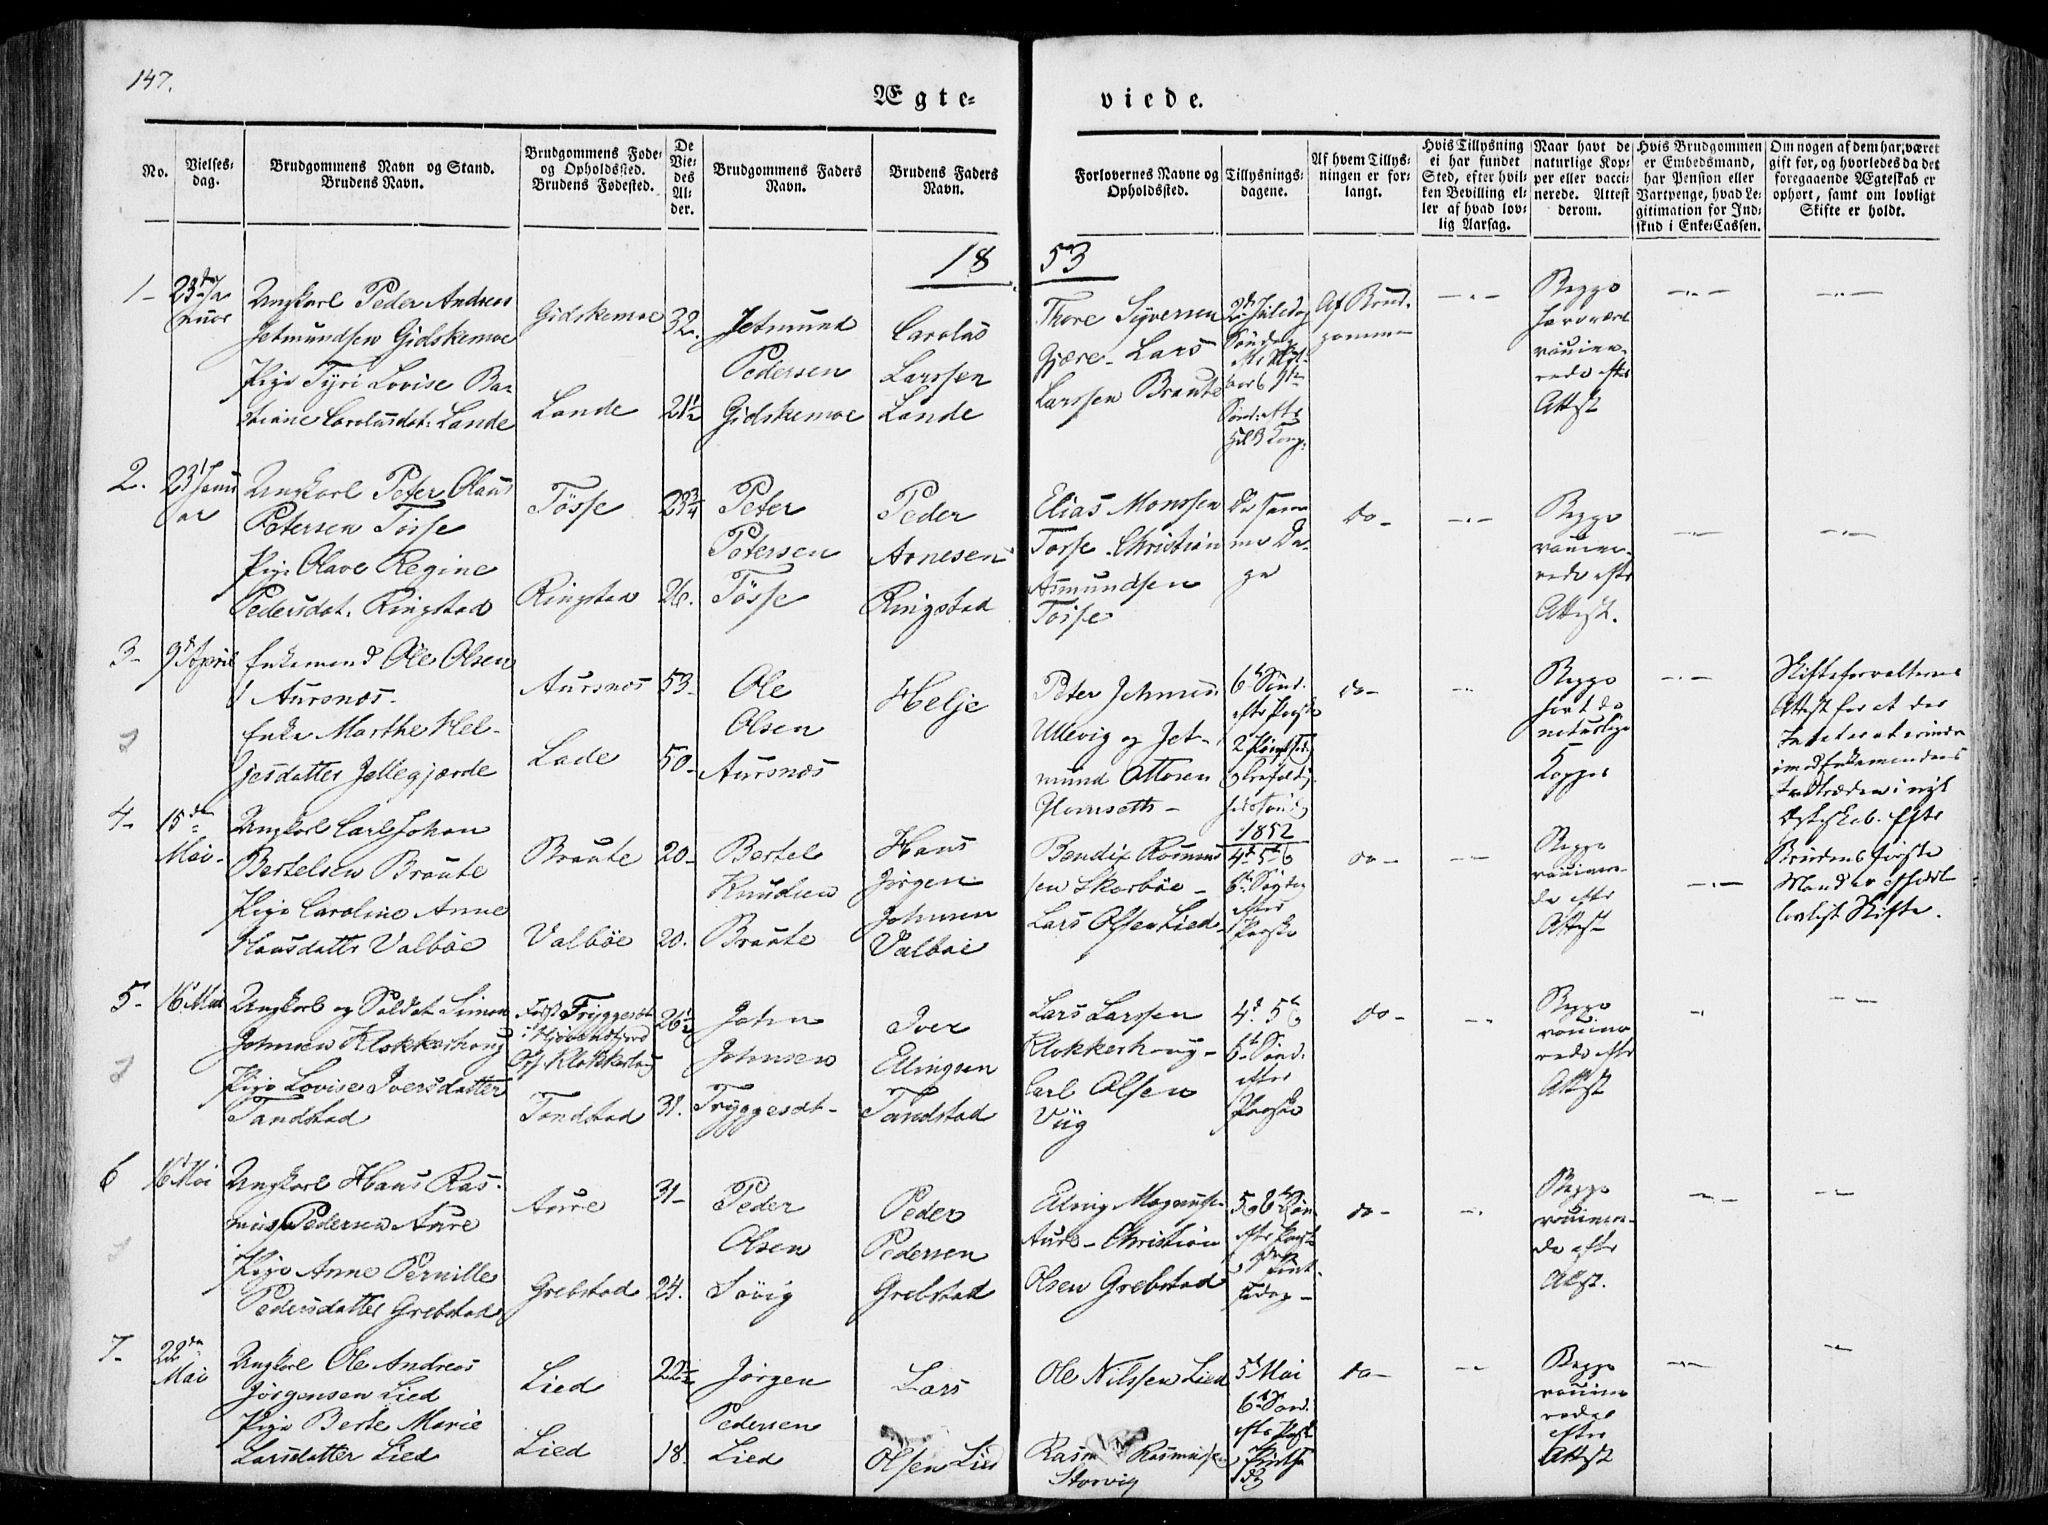 147.
Ægte=
viede.
No.
Vielses-
dag.
Brudgommens Navn og Stand.
Brudens Navn.
Brudgommens Føde-
og Opholdssted.
Brudens Fødested.
De
Vie-
des
Al-
der.
Brudgommens Faders
Navn.
Brudens Faders
Navn.
Forlovernes Navne og
Opholdssted.
Tillysnings-
dagene.
Af hvem Tillys-
ningen er for-
langt.
Hvis Tillysning
ei har fundet
Sted, efter hvil-
ken Bevilling el-
ler af hvad lov-
lig Aarsag.
Naar havt de
naturlige Kop-
per eller vacci-
nerede. Attest
derom.
Hvis Brudgommen
er Embedsmand,
har Pension eller
Vartpenge, hvad Le-
gitimation for Ind-
skud i Enke-Cassen.
Om nogen af dem har været
gift før, og hvorledes da det
foregaaende Ægteskab er
ophørt, samt om lovligt
Skifte er holdt.
18 53
1-
Ungkarl Peder Andreas
Jetmundsen Gidskemoe
Pige Tyri Lovise Ba-
Carolusdat: Lande
Gidskemoe
Lande
32.
21½
Jetmund
Pedersen
Gidskemoe
Carolus
Larssen
Lande
Thore Syversen
Gjære - Lars
Larssen Braute
2d Juledag
Søndag
Af Brud-
gommen
Begge
vaccine-
rede efter
Attest
2.
23 Janu
ar
Ungkarl Peter Olaus
Petersen Tøsse
Pige Olave Regine
Pedersdat. Ringstad
Tøsse
Ringstad
23¾
26.
Peter
Petersen
Tøsse
Peder
Arnesen
Ringstad
Elias Monssen
Tøsse - Christian
Asmundsen
Tøsse
De sam-
me Da-
ge
do-
Begge
vaccine-
rede efter
Attest.
3-
9d April
Enkemand Ole Olsen
Aursnes.
Enke Marthe Hel-
jesdatter Jellegjærde
Aursnes
Lade
53-
50-
Ole
Olsen
Aursnes
Helje
Peter Johnsen
Ullevig og Jet-
mund Ottosen
Glomseth -
6te Sønd.
efter Paaske
1852
do-
Begge
havt de
naturlige
Kopper
Skifteforvalterens
Attest for at der
Intet er at erindre
imod Enkemandens
Indtræden i nyt
Ægteskab. Efter
Brudens første
Mand er afholdt
lovligt Skifte.
4-
15de
Mai-
Ungkarl Carl Johan
Bertelsen Braute
Pige Caroline Anne
Hansdatter Valbøe
Braute
Valbøe
20-
20.
Bertel
Knudsen
Braute
Hans
Jørgen
Johnsen
Valbøe
Bendix Rasmus
sen Skarbøe -
Lars Olsen Lied
4d 5te &
6te Søndag
efter
Paaske
do-
Begge
vaccinere-
de efter
Attest
5-
16 Mai
Ungkarl og Soldat Simon
Johnsen Klokkerhoug
Pige Lovise Iversdatter
Tandstad
Født Tryggesdt
i Hjørendfjord
Oph. Klokkerhoug
Tandstad
26½
31.
John
Johnsen
Tryggesdt-
Iver
Ellingsen
Tandstad
Lars Larssen
Klokkerhoug -
Carl Olsen
Viig
4d. 5te &
6te Sønd.
efter
Paaske
do-
Begge
vaccine-
rede efter
Attest
6
16 Mai
Ungkarl Hans Ras-
mus Pedersen Aure
Pige Anne Pernille
Pedersdatter Grebstad
Aure
Grebstad
31-
24.
Peder
Olsen
Søvig
Peder
Pedersen
Grebstad
Elling Magnusse-
Aure - Christian
Olsen Grebstad
5 & 6te Søn-
efter Paaske
do-
Begge
vaccinere-
de efter
Attest.
7-
22de
Mai
Ungkarl Ole Andreas
Jørgensen Lied
Pige Berte Marie
Larsdatter Lied
Lied
Lied
22½
18.
Jørgen
Pedersen
Lied
Lars
Olsen Lied
Ole Nilssen Lied
Rasmusse-
Storvig
5te Mai
6te Sønd.
efter Paaske
do-
Begge
vaccine-
rede
efter
Attest